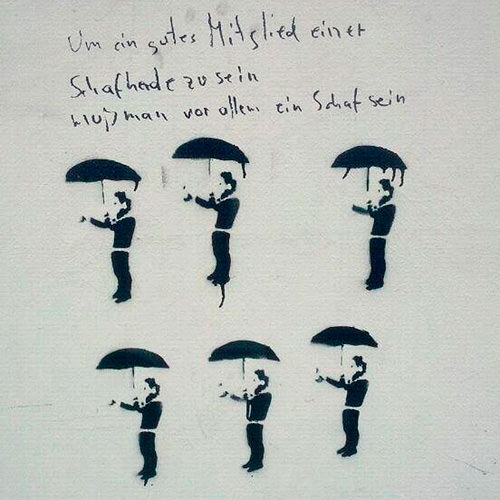 Um ein gutes Mitglied einer
Schafherde zu sein
muß man vor allem ein Schaf sein